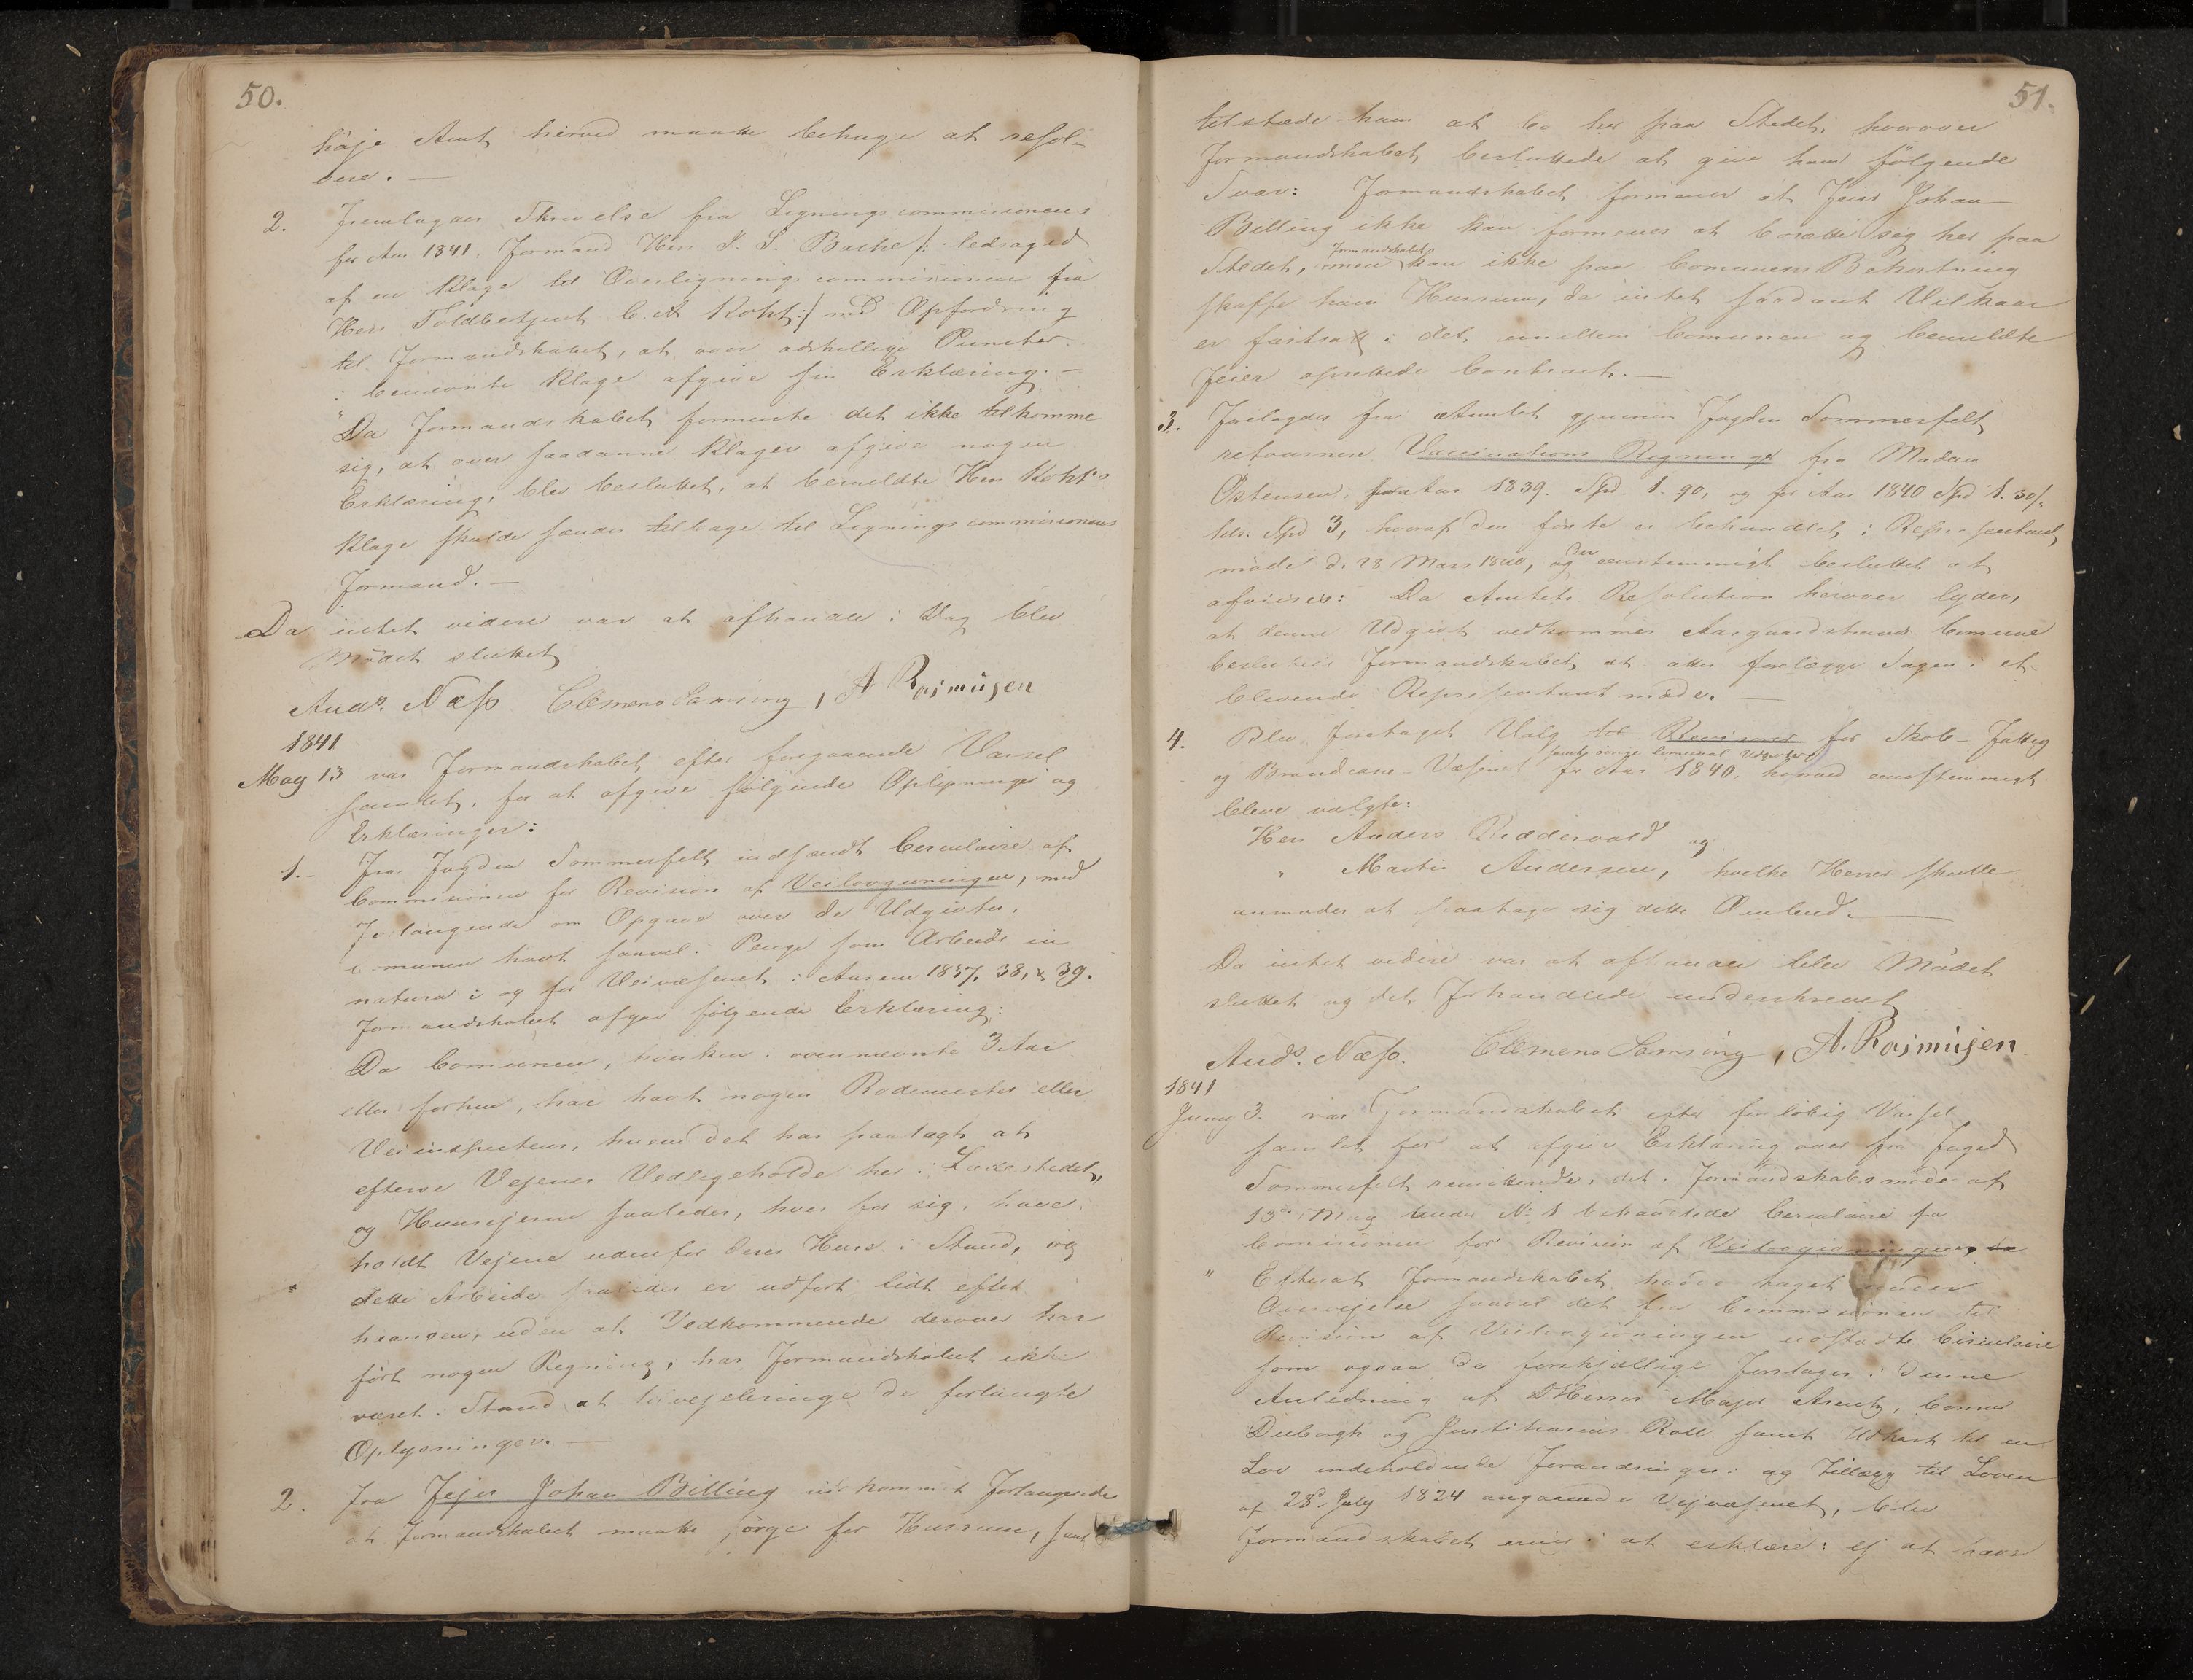 50.
höje Amt herved maatte behage at resol-
vere. —
2. Fremlagdes Skrivelse fra Lignings commissionens
for Aar 1841, Formand Herr J. S. Bache /: ledsaged
af en Klage til Overlignings commissionen fra
Herr Toldbetjent C. A. Koht :/ med Opfordring
til Formandskabet, at over adskillige Puncter
i benævnte Klage afgive sin Erklæring. —
Da Formandskabet formente det ikke tilkomme
sig, at over saadanne Klager afgive nogen
Erklæring, blev besluttet, at bemeldte Herr Koht's
Klage skulde sendes tilbage til Lignings commissionens
Formand. —
Da intet videre var at afhandle i Dag blev
Mödet sluttet
Ands. Næss Clemens Samsing, A Rasmusen
1841
May 13 var Formandskabet efter foregaaende Varsel
samlet, for at afgive fölgende Oplysninger og
Erklæringer:
1. – Fra Fogden Sommerfelt indsendt Circulaire af
Commissionen for Revision af Veilovgivningen, med
Forlangende om Opgave over de Udgivter,
Comunen havt saavel i Penge som Arbeide in
natura i og for Veivæsenet i Aarene 1837, 38, & 39.
Formandskabet afgav fölgende Erklæring:
Da Comunen, hverken i ovennævnte 3 Aar
eller forhen, har havt nogen Rodemester eller
Veiinspecteur, hvem det har paalagt at
efterse Vejenes Vedligeholde her i Ladestedet,
og Huusejerne saaledes, hver for sig, have
holdt Vejene udenfor deres Huse i Stand, og
dette Arbeide saaledes er udfört lidt efter
haanden, uden at Vedkommende derover har
fört nogen Regning, har Formandskabet ikke
været i Stand at tilvejebringe de forlangte
Oplysninger. —
2. Fra Fejer Johan Billing indkommet Forlangende
at Formandskabet maatte sörge for Huusrum, samt
51.
tilstæde ham at bo her paa Stedet, hvorover
Formandskabet besluttede at give ham fölgende
Svar: Formandskabet formener at Feier Johan
Billing ikke kan formenes at bosætte sig her paa
Stedet, men Formandskabet kan ikke paa Comunens Bekostning
skaffe ham Huusrum, da intet saadant Vilkaar
er fastsatt i det imellem Comunen og bemeldte
Feier oprettede Contract. —
3. Forelagdes fra Amtet gjennem Fogden Sommerfelt
retournere Vaccinations Regning fra Madam
Östensen, for Aar 1839. Spd. 1. 90, og for Aar 1840 Spd 1. 30/:
tils. Spd 3, hvoraf den förste er behandlet i Repræsentant
möde d. 28 Mars 1840, og der eenstemmigt besluttet at
afvises: Da Amtets Resolution herover lyder,
at denne Udgivt vedkommer Aasgaardstrands Comune
besluttes Formandskabet at atter forelægge Sagen i et
blivende Repræsentant möde. —
4. Blev foretaget Valg til Revisorer for Skole- Fattig
og Brandcasse-Væsenet samt övrige Comunal Udgivter for Aar 1840, hvorved eenstemmigt
bleve valgte:
Herr Anders Riddervold og
" Martin Andersen, hvilke Herrer skulle
anmodes at paatage sig dette Ombud. —
Da intet videre var at afhandle blev Mödet
sluttet og det Forhandlede underskrevet
Ands. Næss. Clemens Samsing, A. Rasmusen
1841
Juny 3. var Formandskabet efter forlöbig Varsel
samlet for at afgive Erklæring over fra Foged
Sommerfelt remitterede, det i Formandskabsmöde af
13de May under No 1 behandlede Circulaire fra
Comissionen for Revision af Veilovgivningen,
" Efterat Formandskabet havde taget under
Overvejelse saavel det fra Commissionen til
Revision af Veilovgivningen udstædte Circulaire
som ogsaa de forskjællige Forslager i denne
Anledning af DHerrer Major Arentz, Consul
Duborgh og Justitiarius Roll samt Udkast til en
Lov indeholdende Forandringer i og Tillæg til Loven
af 28d July 1824 angaaende Vejvæsenet, blev
Formandskabet enig i at erklære: ej at have